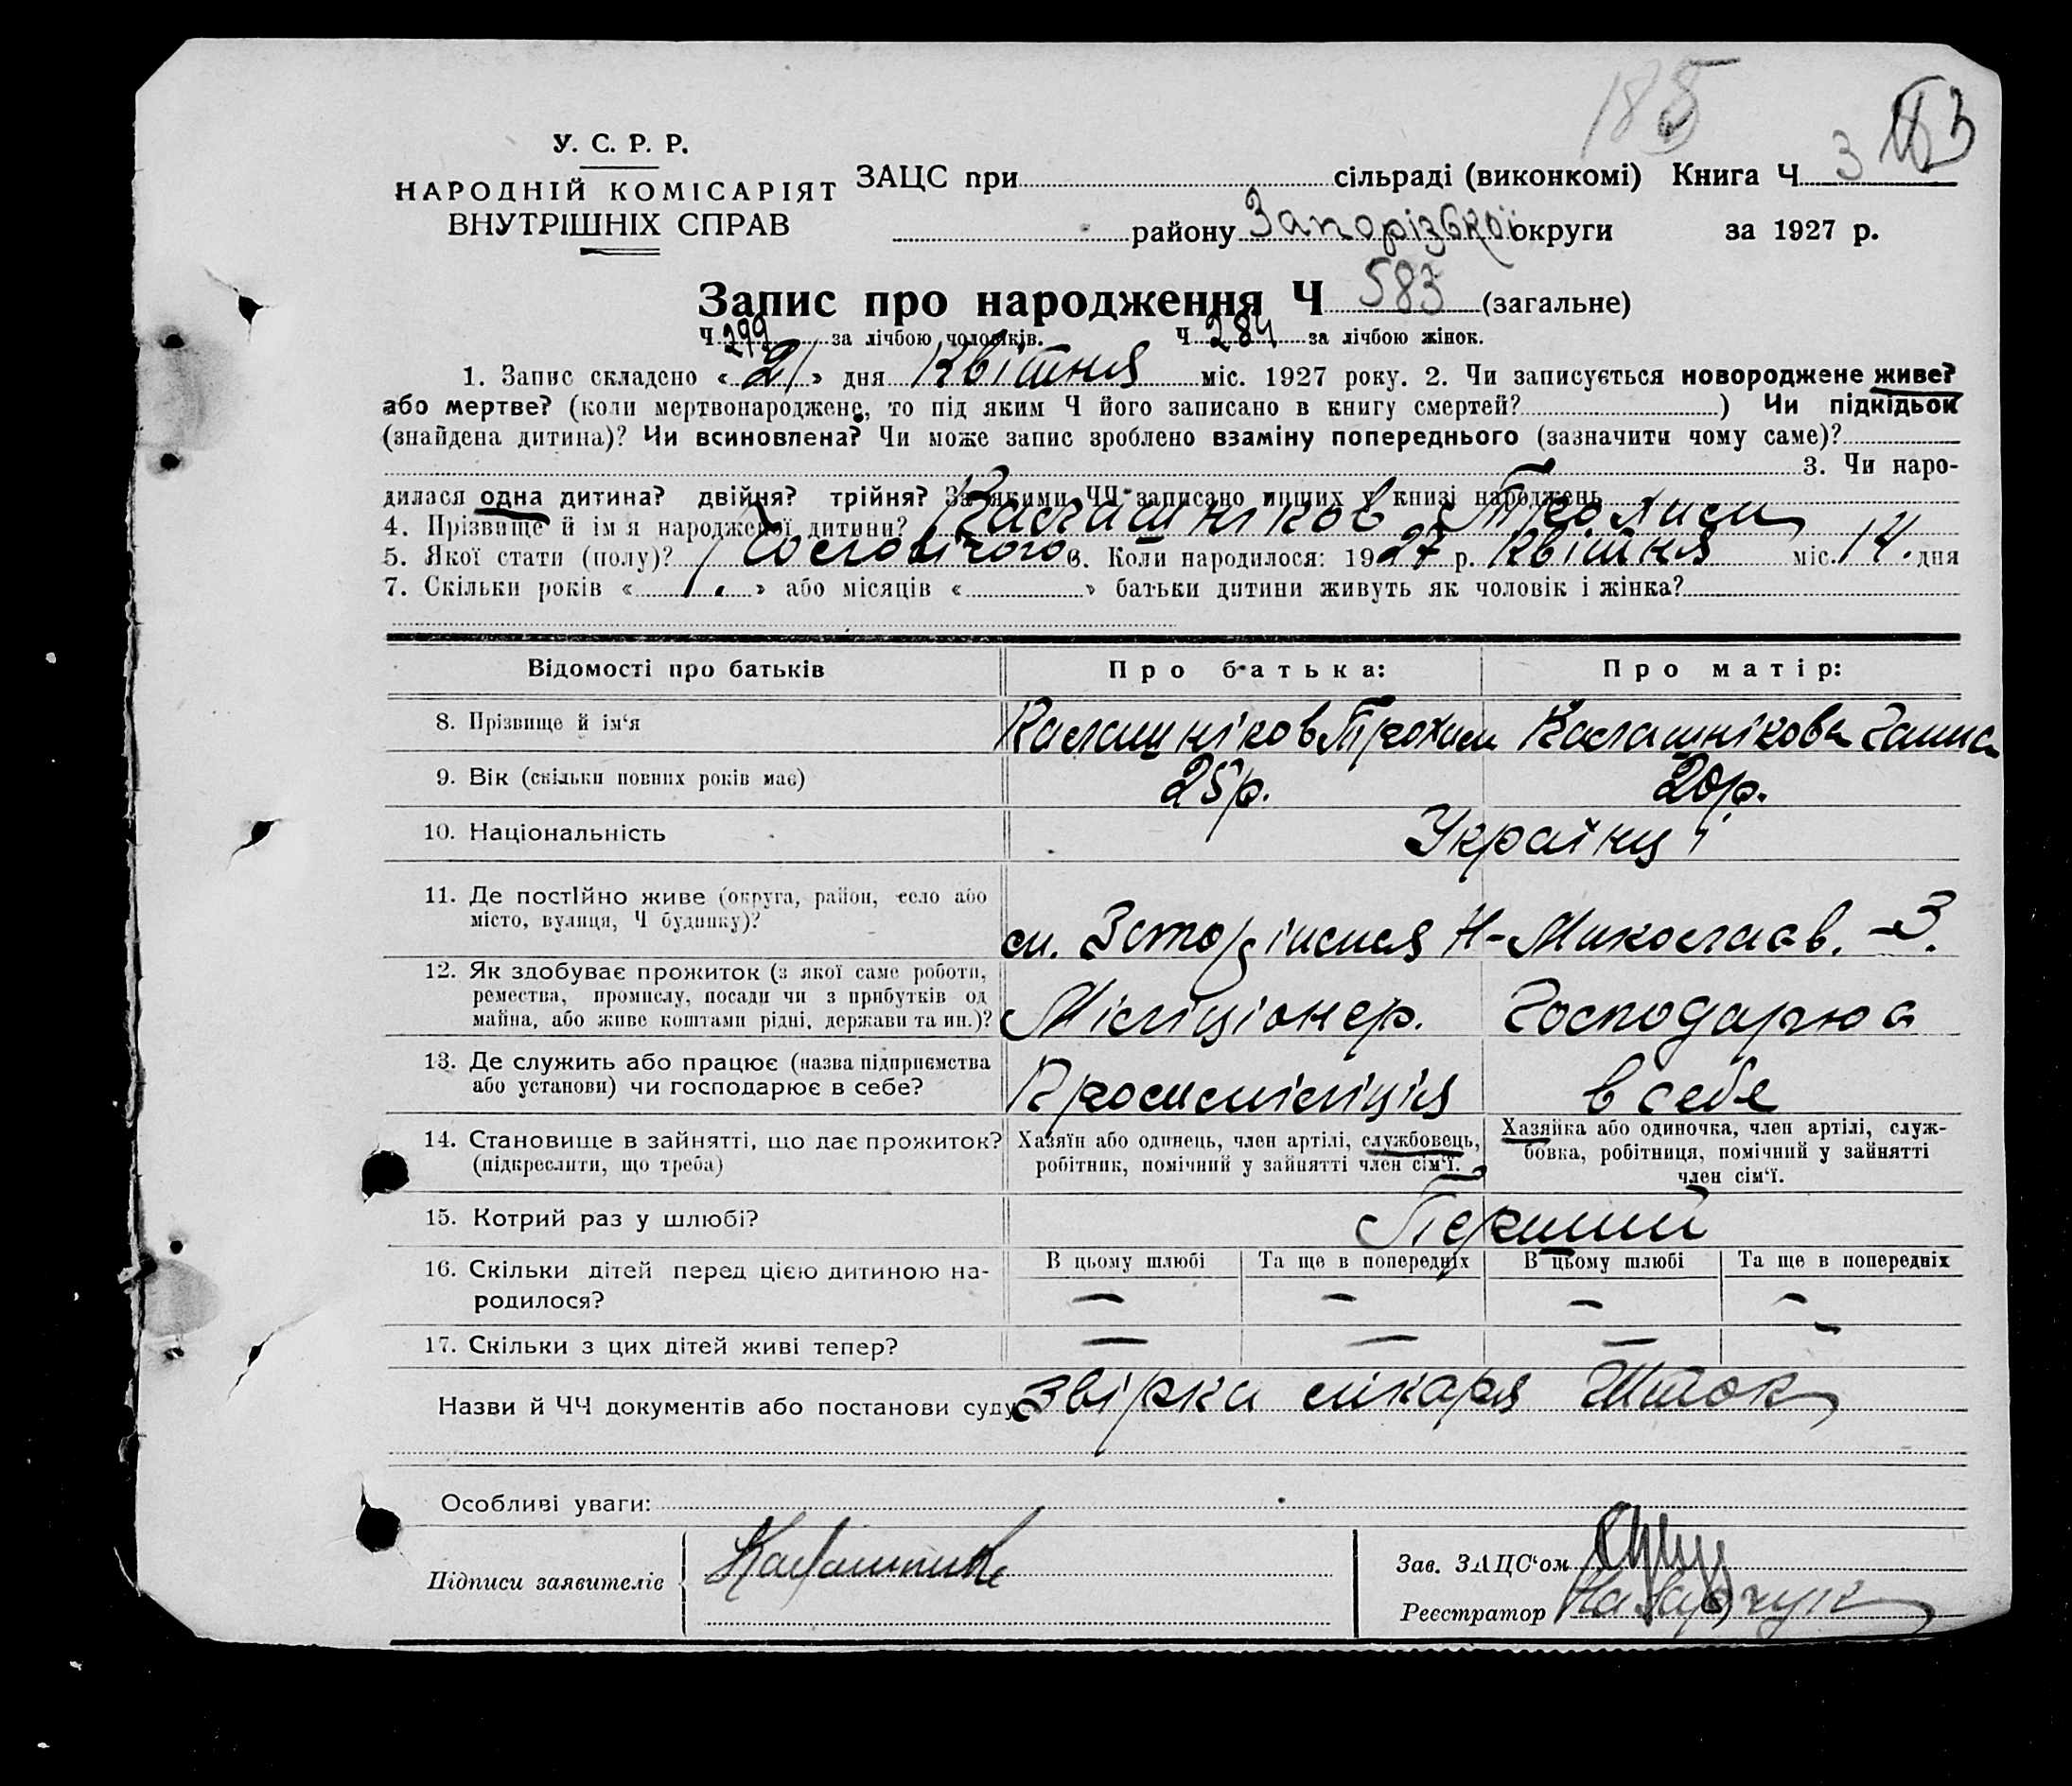 185
У. С. Р. Р.
НАРОДНІЙ КОМІСАРІЯТ
ВНУТРІШНІХ СПРАВ
ЗАЦС при сільраді (виконкомі) Книга Ч 3
району Запорізької округи за 1927 р.
Запис про народження Ч 583 (загальне)
Ч 299 за лічбою чоловіків. Ч 284 за лічбою жінок.
1. Запис складено « 21 » дня Квітня міс. 1927 року. 2. Чи записується новороджене живе?
або мертве? (коли мертвонароджене, то під яким Ч його записано в книгу смертей? ) Чи підкідьок
(знайдена дитина)? Чи всиновлена? Чи може запис зроблено взаміну попереднього (зазначити чому саме)?
3. Чи наро-
дилася одна дитина? двійня? трійня? За якими ЧЧ записано инших у книзі народжень
4. Прізвище й ім'я народженої дитини? Калашніков
5. Якої стати (полу)? Чоловічого 6. Коли народилося: 1927 р. Квітня міс. 14. дня
7. Скільки років « 1. » або місяців « » батьки дитини живуть як чоловік і жінка?
Відомості про батьків Про батька: Про матір:
8. Прізвище й ім'я Калашніков Трохим Калашнікова Ганна
9. Вік (скільки повних років має) 25 р. 20 р.
10. Національність Українці
11. Де постійно живе (округа, район, село або
місто, вулиця, Ч будинку)?
м. Запоріжжя Н-Миколаєв. -3.
12. Як здобуває прожиток (з якої саме роботи,
ремества, промислу, посади чи з прибутків од
майна, або живе коштами рідні, держави та ин.)?
Міліціонер. Господарює
13. Де служить або працює (назва підприємства
або установи) чи господарює в себе?
Промміліція в себе
14. Становище в зайнятті, що дає прожиток?
(підкреслити, що треба)
Хазяїн або одинець, член артілі, службовець,
робітник, помічний у зайнятті член сім'ї.
Хазяйка або одиночка, член артілі, служ-
бовка, робітниця, помічний у зайнятті
член сім'ї.
15. Котрий раз у шлюбі? Перший
16. Скільки дітей перед цією дитиною на-
родилося?
В цьому шлюбі Та ще в попередніх В цьому шлюбі Та ще в попередніх
— — — —
17. Скільки з цих дітей живі тепер? — — — —
Назви й ЧЧ документів або постанови суду лікаря Шток
Особливі уваги:
Підписи заявителів
Зав. ЗАЦС'ом
Реєстратор